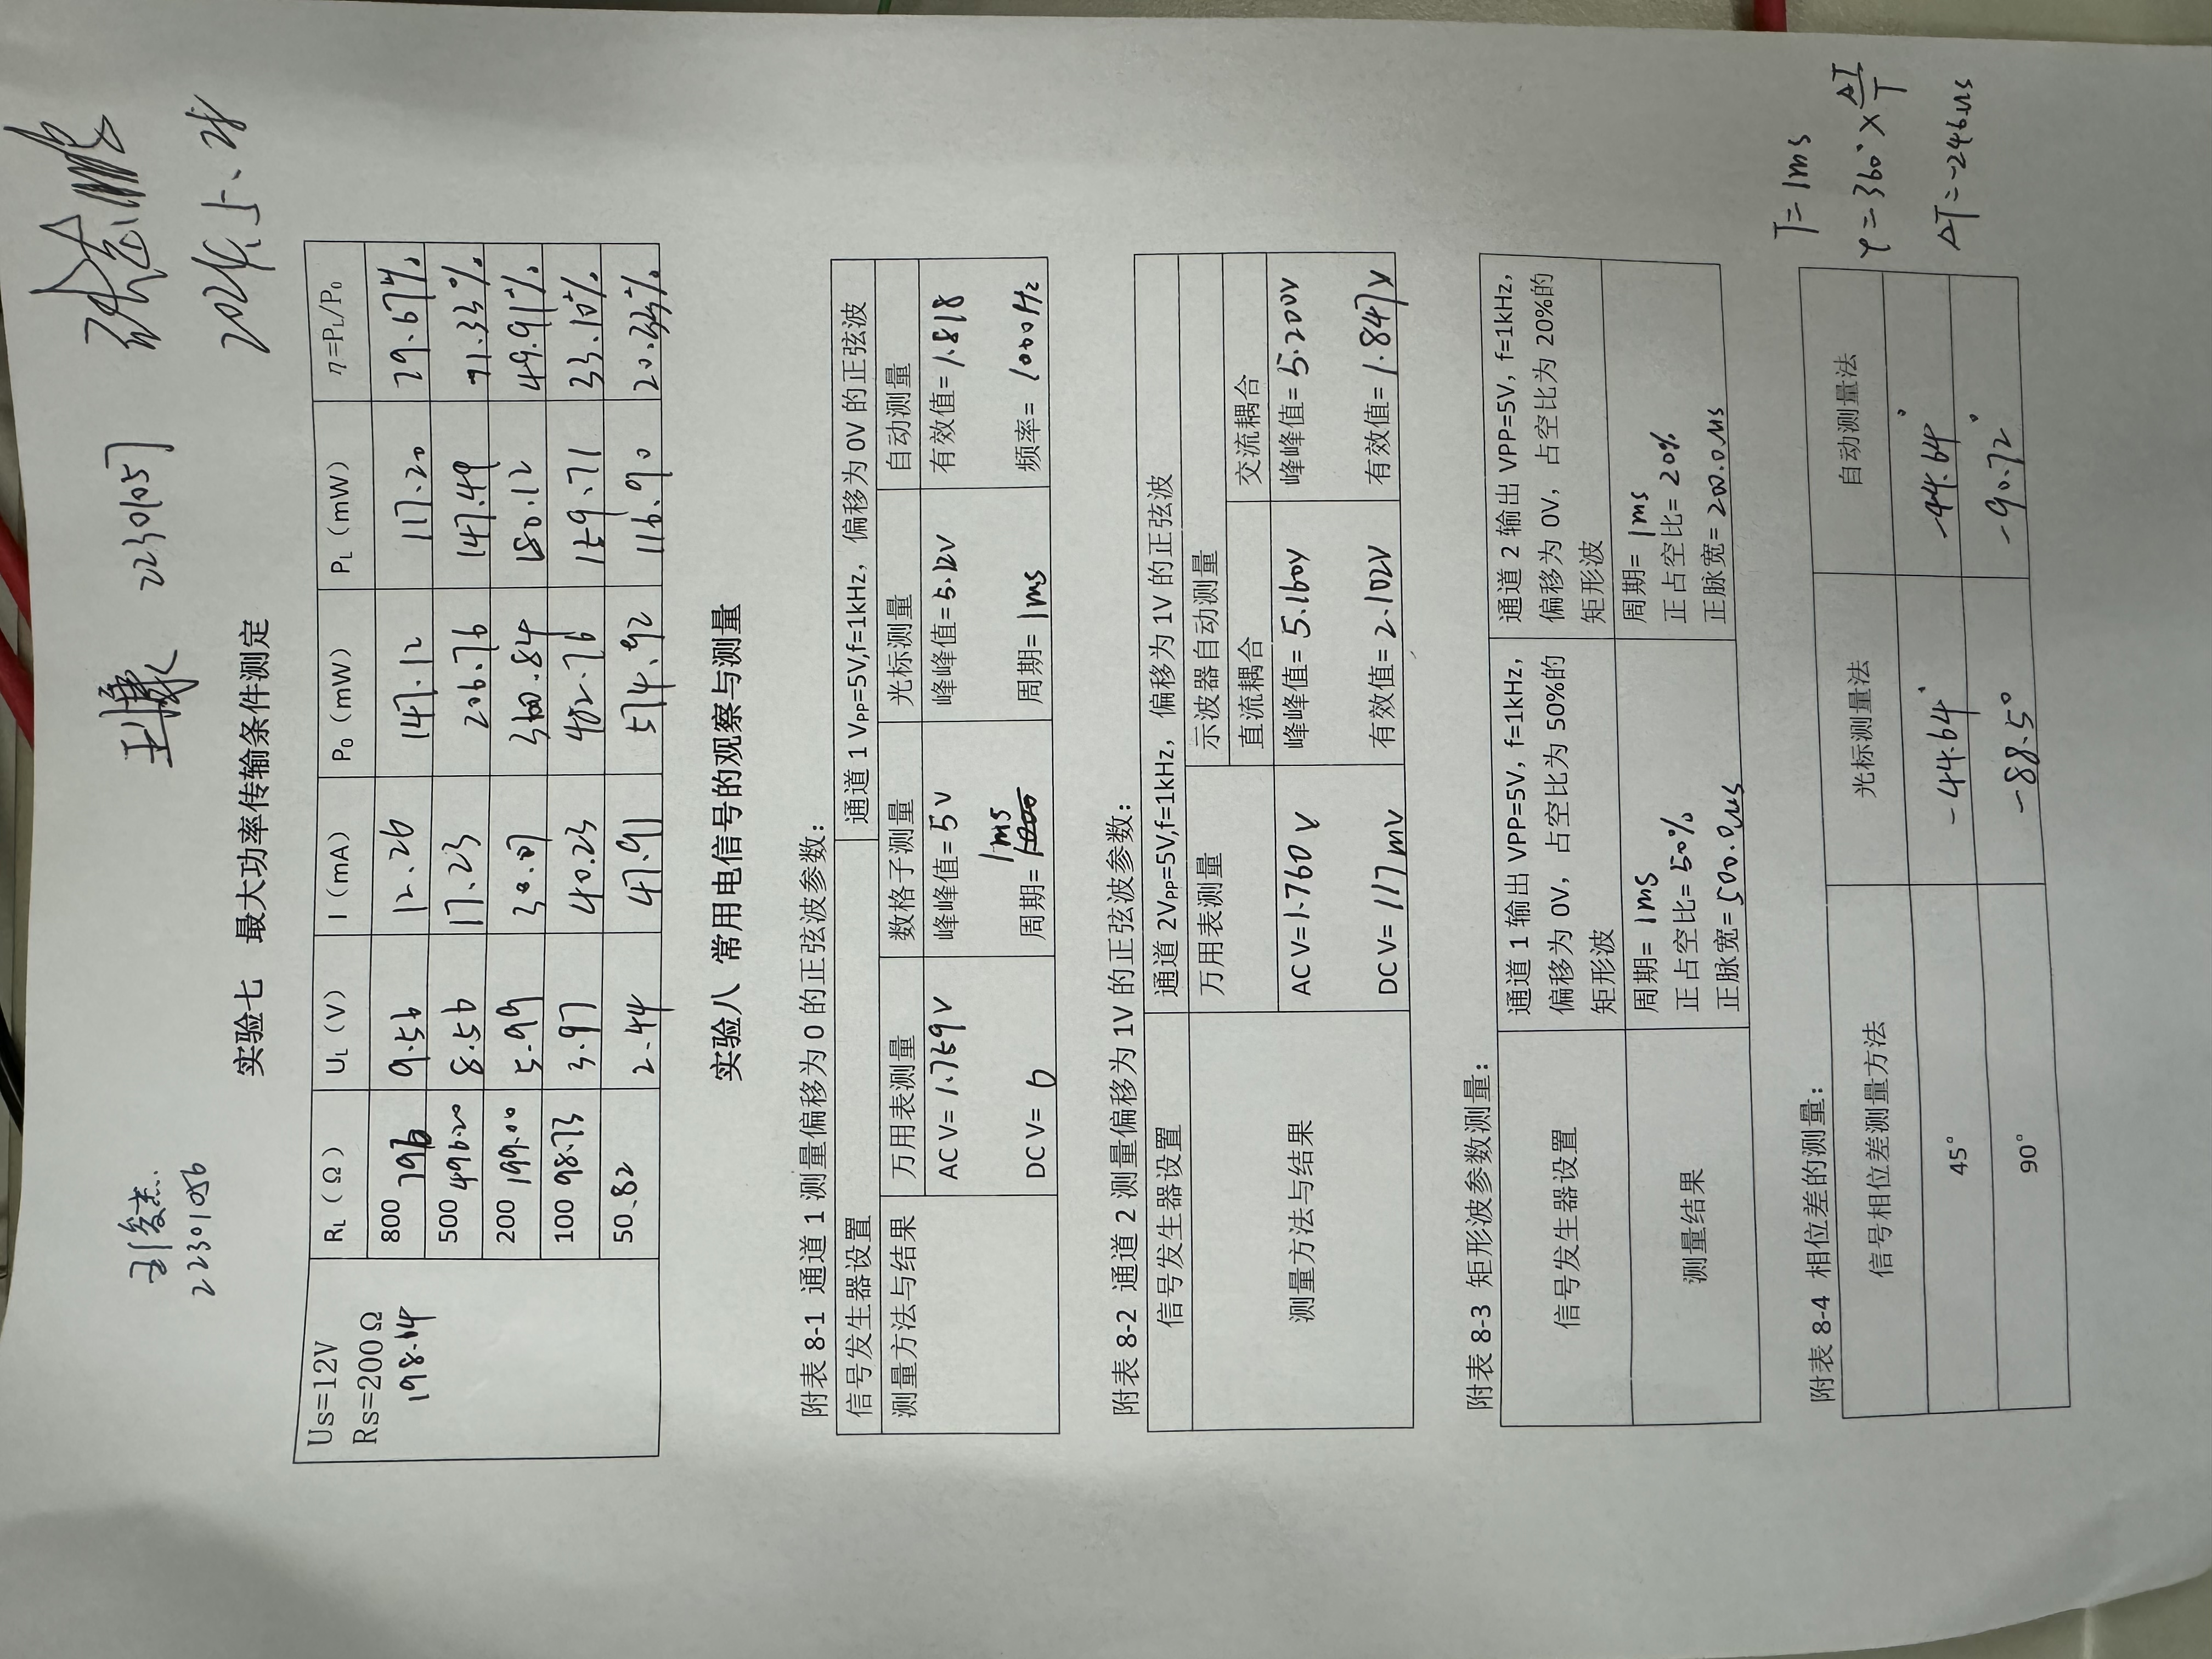 刘俊杰
22301056
王康 22301057
2024.5.28
实验七 最大功率传输条件测定
Us=12V
Rs=200Ω
198.64
RL（Ω） UL（V） I（mA） P0（mW） PL（mW） η=PL/P0
800 796 9.56 12.26 147.12 117.20 79.67%
500 496.20 8.56 17.23 206.76 147.49 71.33%
200 199.00 5.99 30.07 360.84 180.12 49.91%
100 98.73 3.97 40.23 482.76 159.71 33.10%
50.82 2.44 47.91 574.92 116.90 20.33%
实验八 常用电信号的观察与测量
附表 8-1 通道 1 测量偏移为 0 的正弦波参数：
信号发生器设置 通道 1 VPP=5V,f=1kHz，偏移为 0V 的正弦波
测量方法与结果 万用表测量 数格子测量 光标测量 自动测量
AC V= 1.759V 峰峰值= 5V 峰峰值=5.12V 有效值= 1.818
1ms
DC V= 0 周期= 1000 周期= 1ms 频率= 1000Hz
附表 8-2 通道 2 测量偏移为 1V 的正弦波参数：
信号发生器设置 通道 2VPP=5V,f=1kHz，偏移为 1V 的正弦波
万用表测量 示波器自动测量
直流耦合 交流耦合
测量方法与结果
AC V=1.760 V 峰峰值= 5.160V 峰峰值= 5.200V
DC V= 117mV 有效值= 2.102V 有效值= 1.847V
附表 8-3 矩形波参数测量：
信号发生器设置
通道 1 输出 VPP=5V，f=1kHz，
偏移为 0V，占空比为 50%的
矩形波
通道 2 输出 VPP=5V，f=1kHz，
偏移为 0V，占空比为 20%的
矩形波
测量结果
周期= 1ms
正占空比= 50%
正脉宽= 500.0μs
周期= 1ms
正占空比= 20%
正脉宽= 200.0μs
附表 8-4 相位差的测量：
信号相位差测量方法 光标测量法 自动测量法
45° -44.64° -44.64°
90° -88.5° -90.72°
T=1ms
φ=360°×ΔT/T
ΔT=-246μs